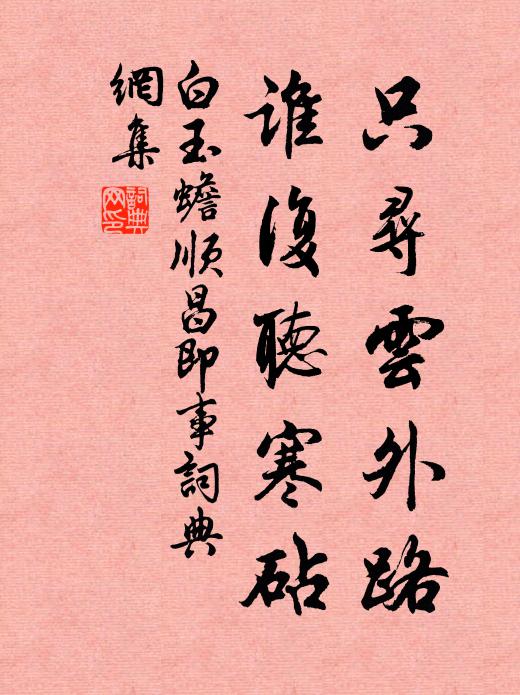 只尋雲外路
誰復聽寒砧
白玉蟾順昌即事詞典
網集
詞典網印